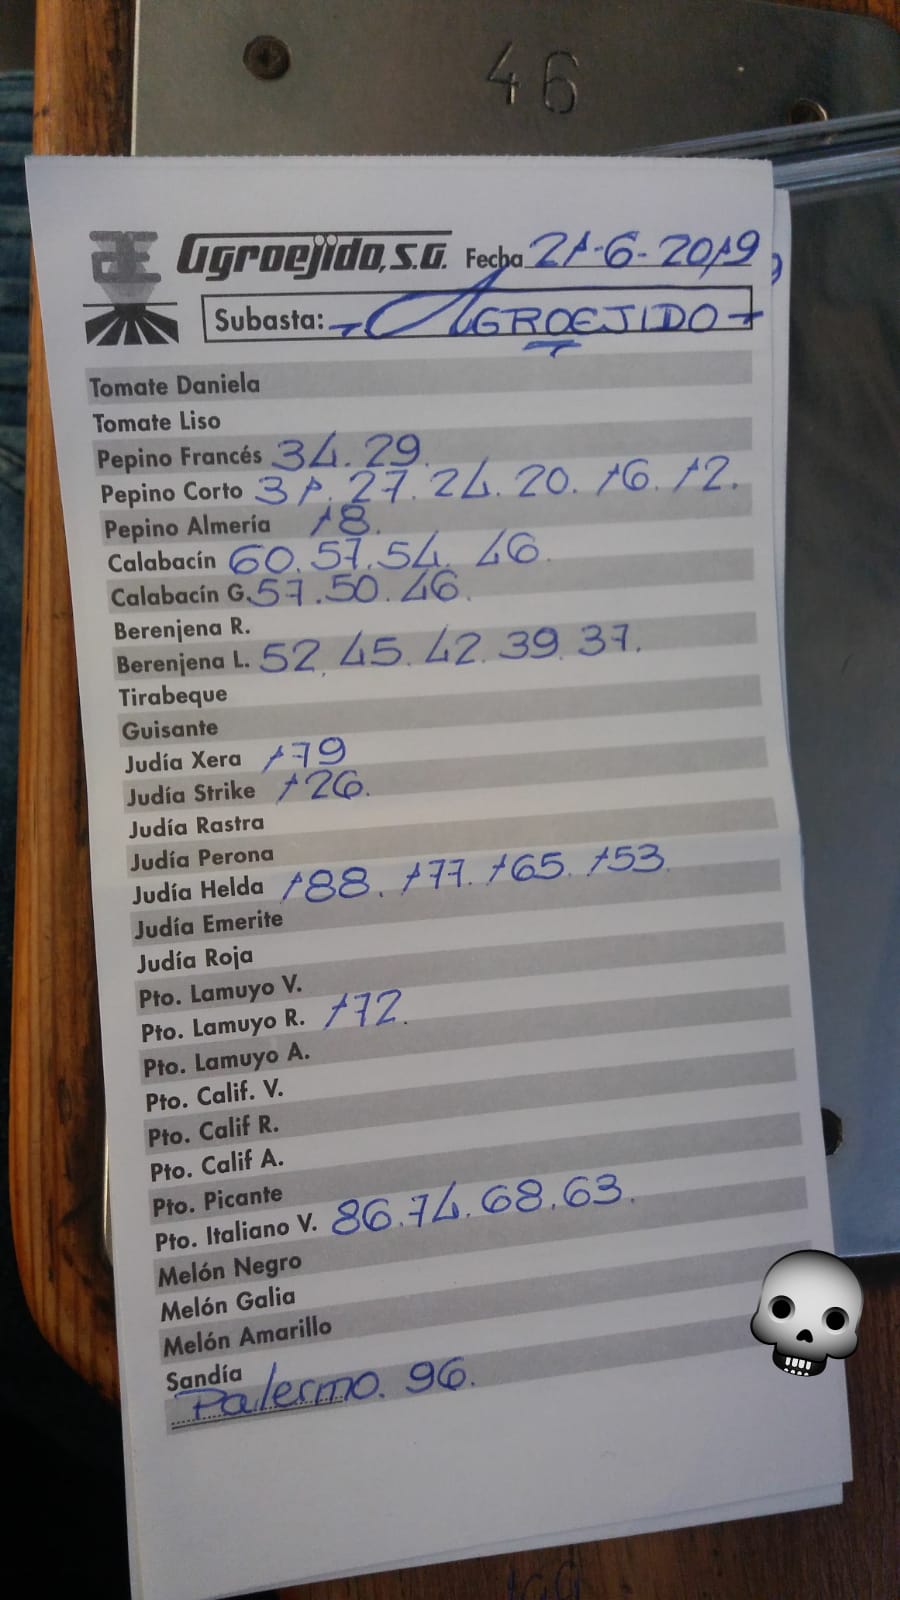 46
Agroejido, S.A. Fecha 21-6-2019
Subasta: - AGROEJIDO -
Tomate Daniela
Tomate Liso
Pepino Francés 34. 29.
Pepino Corto 31. 27. 24. 20. 16. 12.
Pepino Almería 18.
Calabacín 60. 57. 54. 46.
Calabacín G. 57. 50. 46.
Berenjena R.
Berenjena L. 52. 45. 42. 39. 37.
Tirabeque
Guisante
Judía Xera 179
Judía Strike 126.
Judía Rastra
Judía Perona
Judía Helda 188. 177. 165. 153.
Judía Emerite
Judía Roja
Pto. Lamuyo V.
Pto. Lamuyo R. 172.
Pto. Lamuyo A.
Pto. Calif. V.
Pto. Calif R.
Pto. Calif A.
Pto. Picante
Pto. Italiano V. 86. 74. 68. 63.
Melón Negro
Melón Galia
Melón Amarillo
Sandía
Palermo. 96.